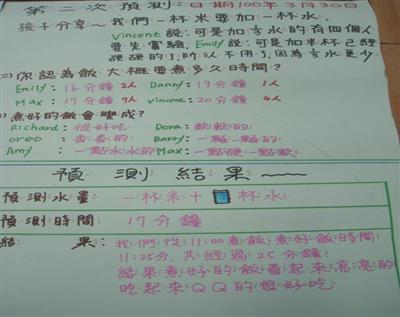 第二次預測：日期100年3月30日
孩子分享～我們一杯米要加一杯水，
Vincent說：可是加亨水的有四個人
要先實驗，Emily說：可是加半杯已經
硬硬的了，所以不用了，因為亨水更少
(一)你認為飯大概要煮多久時間？
Emily：16分鐘 2人 Danny：19分鐘 1人
Max：17分鐘 7人 Vincent：20分鐘 4人
(二)煮好的飯會變成？
Richard：很好吃 Dora：軟軟的
oreo：香香的 Barry：一顆一顆的
Amy：一點水水的 Max：一點硬一點軟
預測結果～～
預測水量 一杯米＋ 杯水
預測時間 17分鐘
結果：我們從11:00煮飯，煮好飯時間：
11:25分，共經過25分鐘，
結果煮好的飯看起來亮亮的
吃起來QQ的很好吃